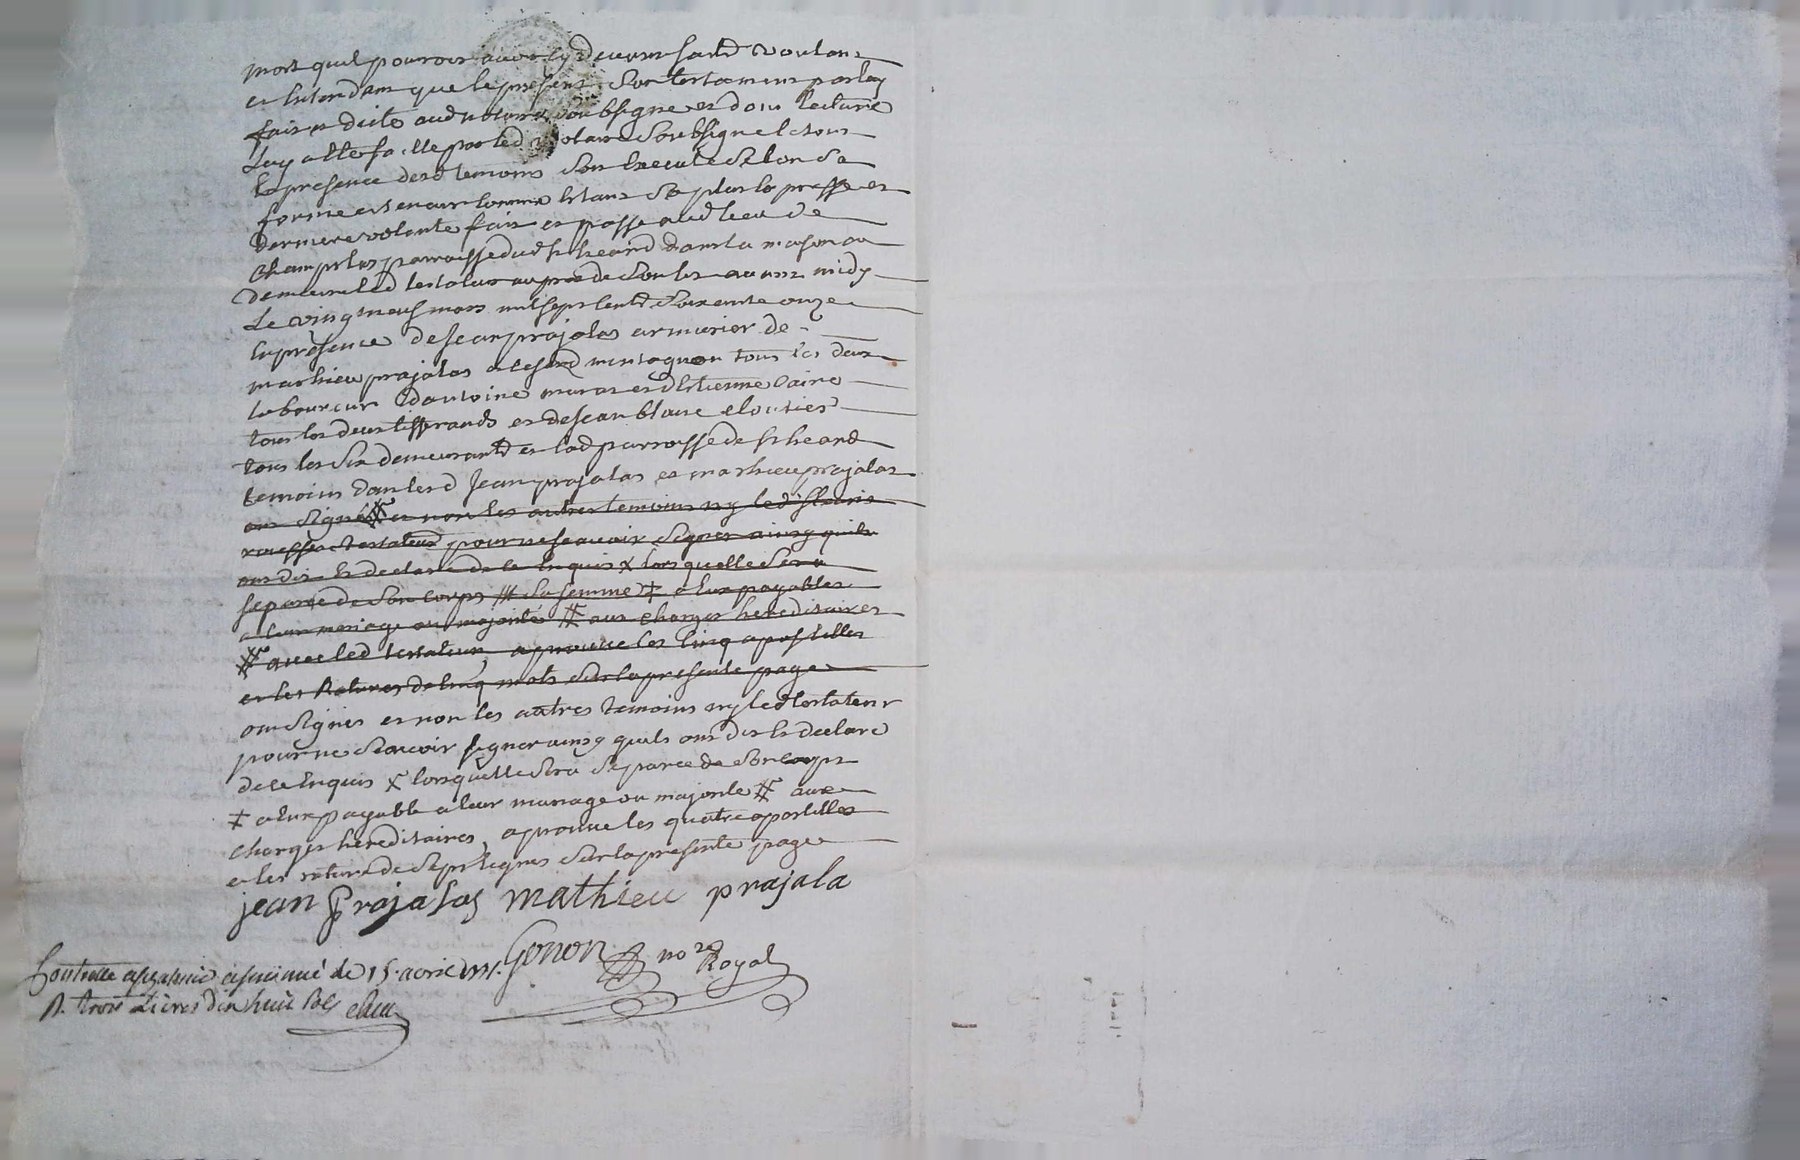 mort quil pourroit avoir cy devant fait voulant
et entendant que le present son testament par luy
fait et dicté aud notaire soubsigné et dont lecture
luy a esté faitte par led notaire soubsigné le tout
en presence desd temoins soit executé selon sa
forme et teneur comme estant sa plus expresse et
derniere volonte fait et passé aud lieu de
champlas parroisse dud st heand dans la maison ou
demeure led testateur au pres de son lit avant midy
Le vingt neuf mars mil sept cent soixante onze
en presence de jean prajalas armurier de
mathieu prajalas et montagnon tous les deux
laboureur d'antoine murat et d'Etienne
tous les deux tisserands et de jean blanc cloutier
tous les six demeurants en lad parroisse de st heand
temoins dont lesd jean prajalas et mathieu prajalas
ont signé # et non les autres temoins ny led
testateur pour ne scavoir signer ainsy quils
ont dit et declaré de ce enquis x lorsquelle sera
separée de son corps /// sa femme ‡ a eux payables
a leur mariage ou majorité # aux charges hereditaires
# avec led testateur, aprouvé les cinq apostilles
et les ratures de cinq mots sur la presente page
ont signés et non les autres temoins ny led testateur
pour ne scavoir signer ainsy quils ont dit et declaré
de ce enquis x lorsquelle sera separée de son corps
‡ a eux payable a leur mariage ou majorité # aux
charges hereditaires, aprouvé les quatre apostilles
et les rature de sept lignes sur la presente page
jean Prajalas mathieu prajala
Gonon no.re Royal
Controllé a st et insinué le 15. avril 1771.
R. trois Livres dix huit sols